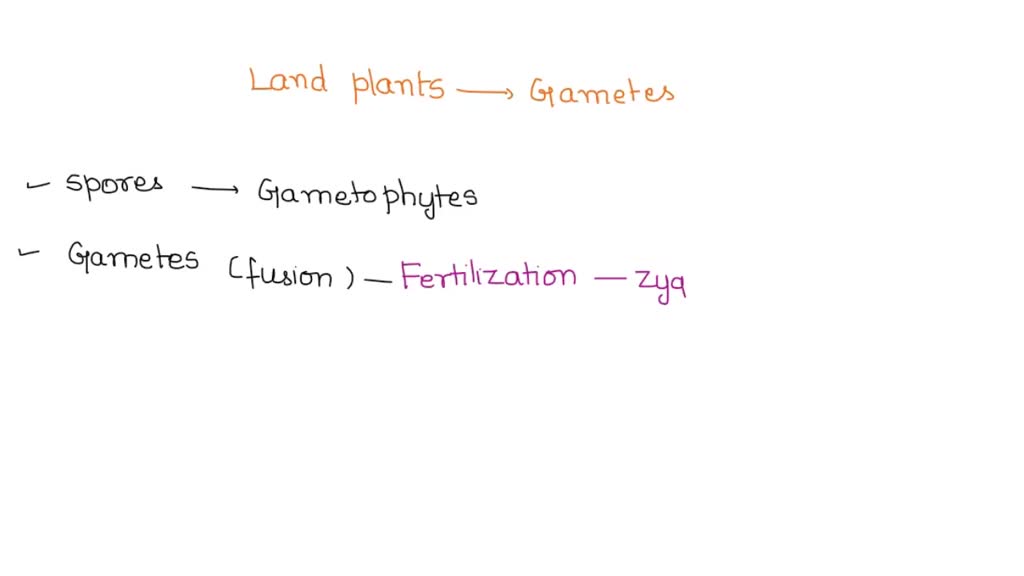 Land plants → Gametes
✓ spores → Gametophytes
✓ Gametes (fusion) — Fertilization — zyq